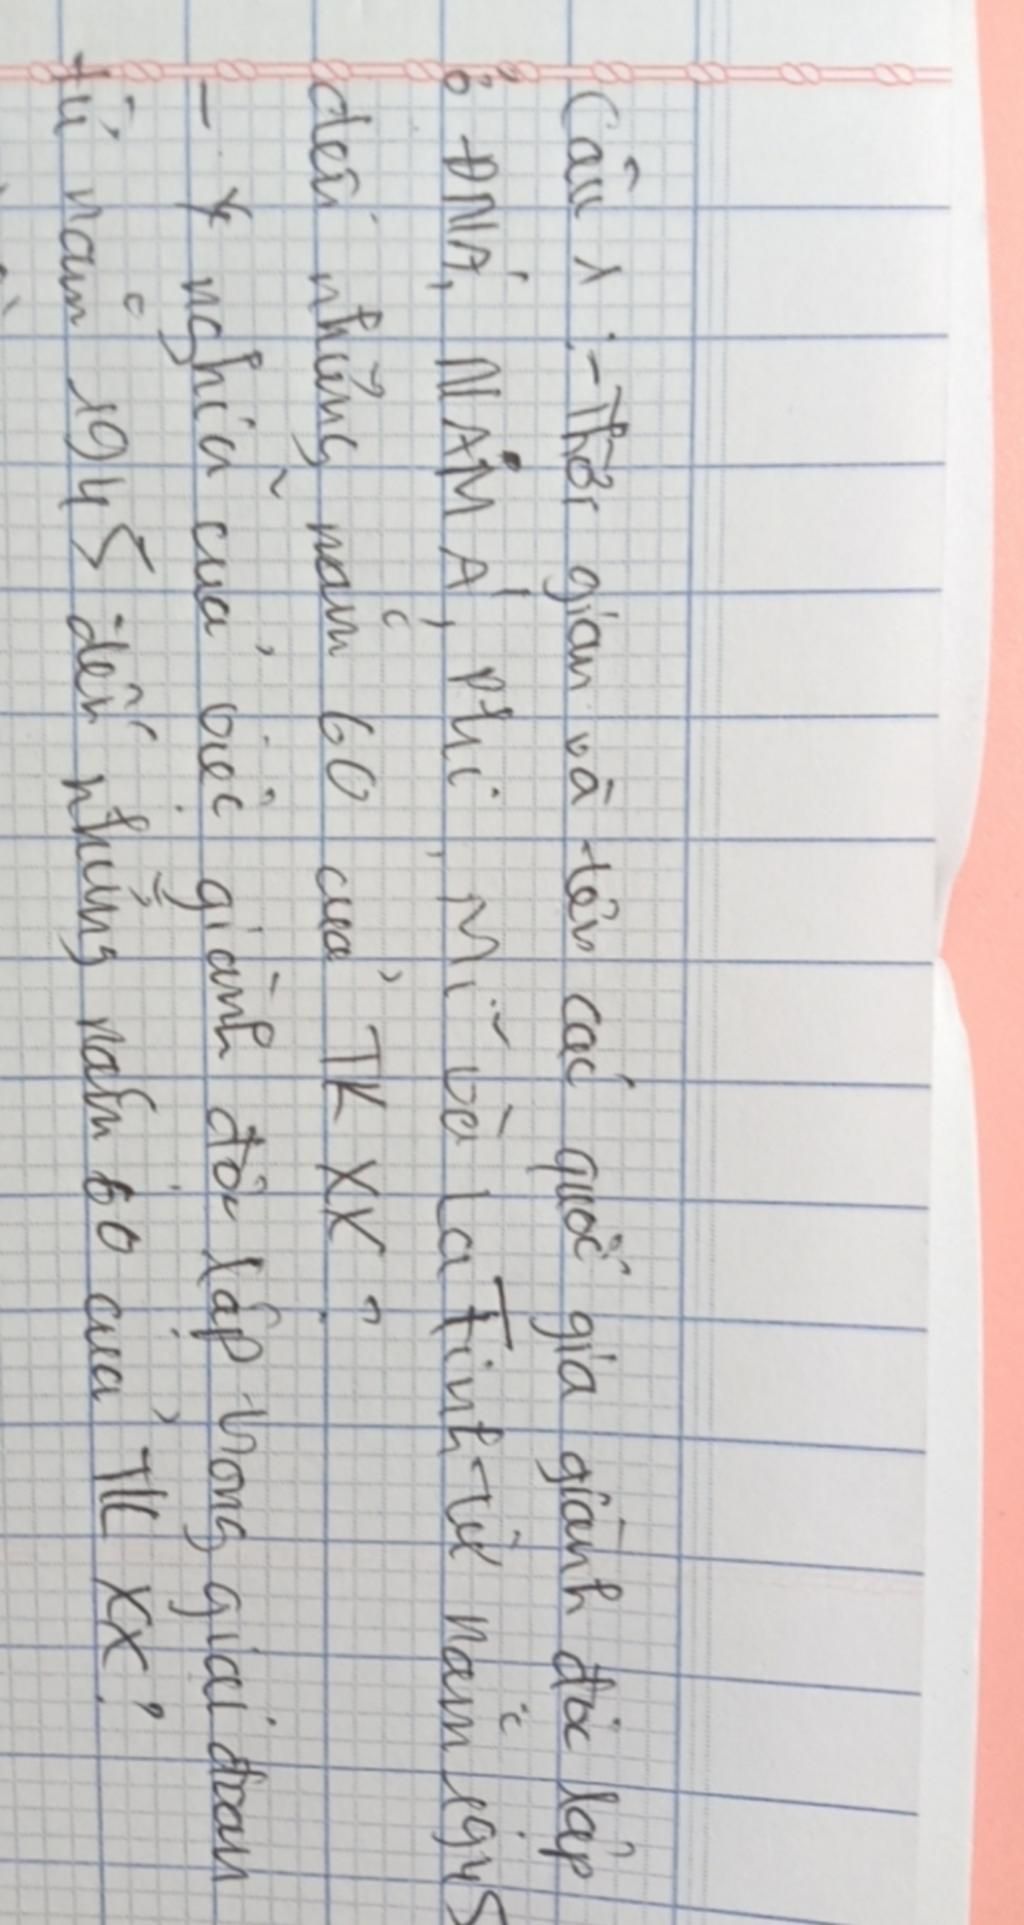 Câu 1 : - Thời gian và tên các quốc gia giành độc lập
ở ĐNÁ, NAM Á, Phi, Mĩ và La Tinh từ năm 1945
đến những năm 60 của TK XX ?
- Ý nghĩa của việc giành độc lập trong giai đoạn
từ năm 1945 đến những năm 60 của TK XX ?